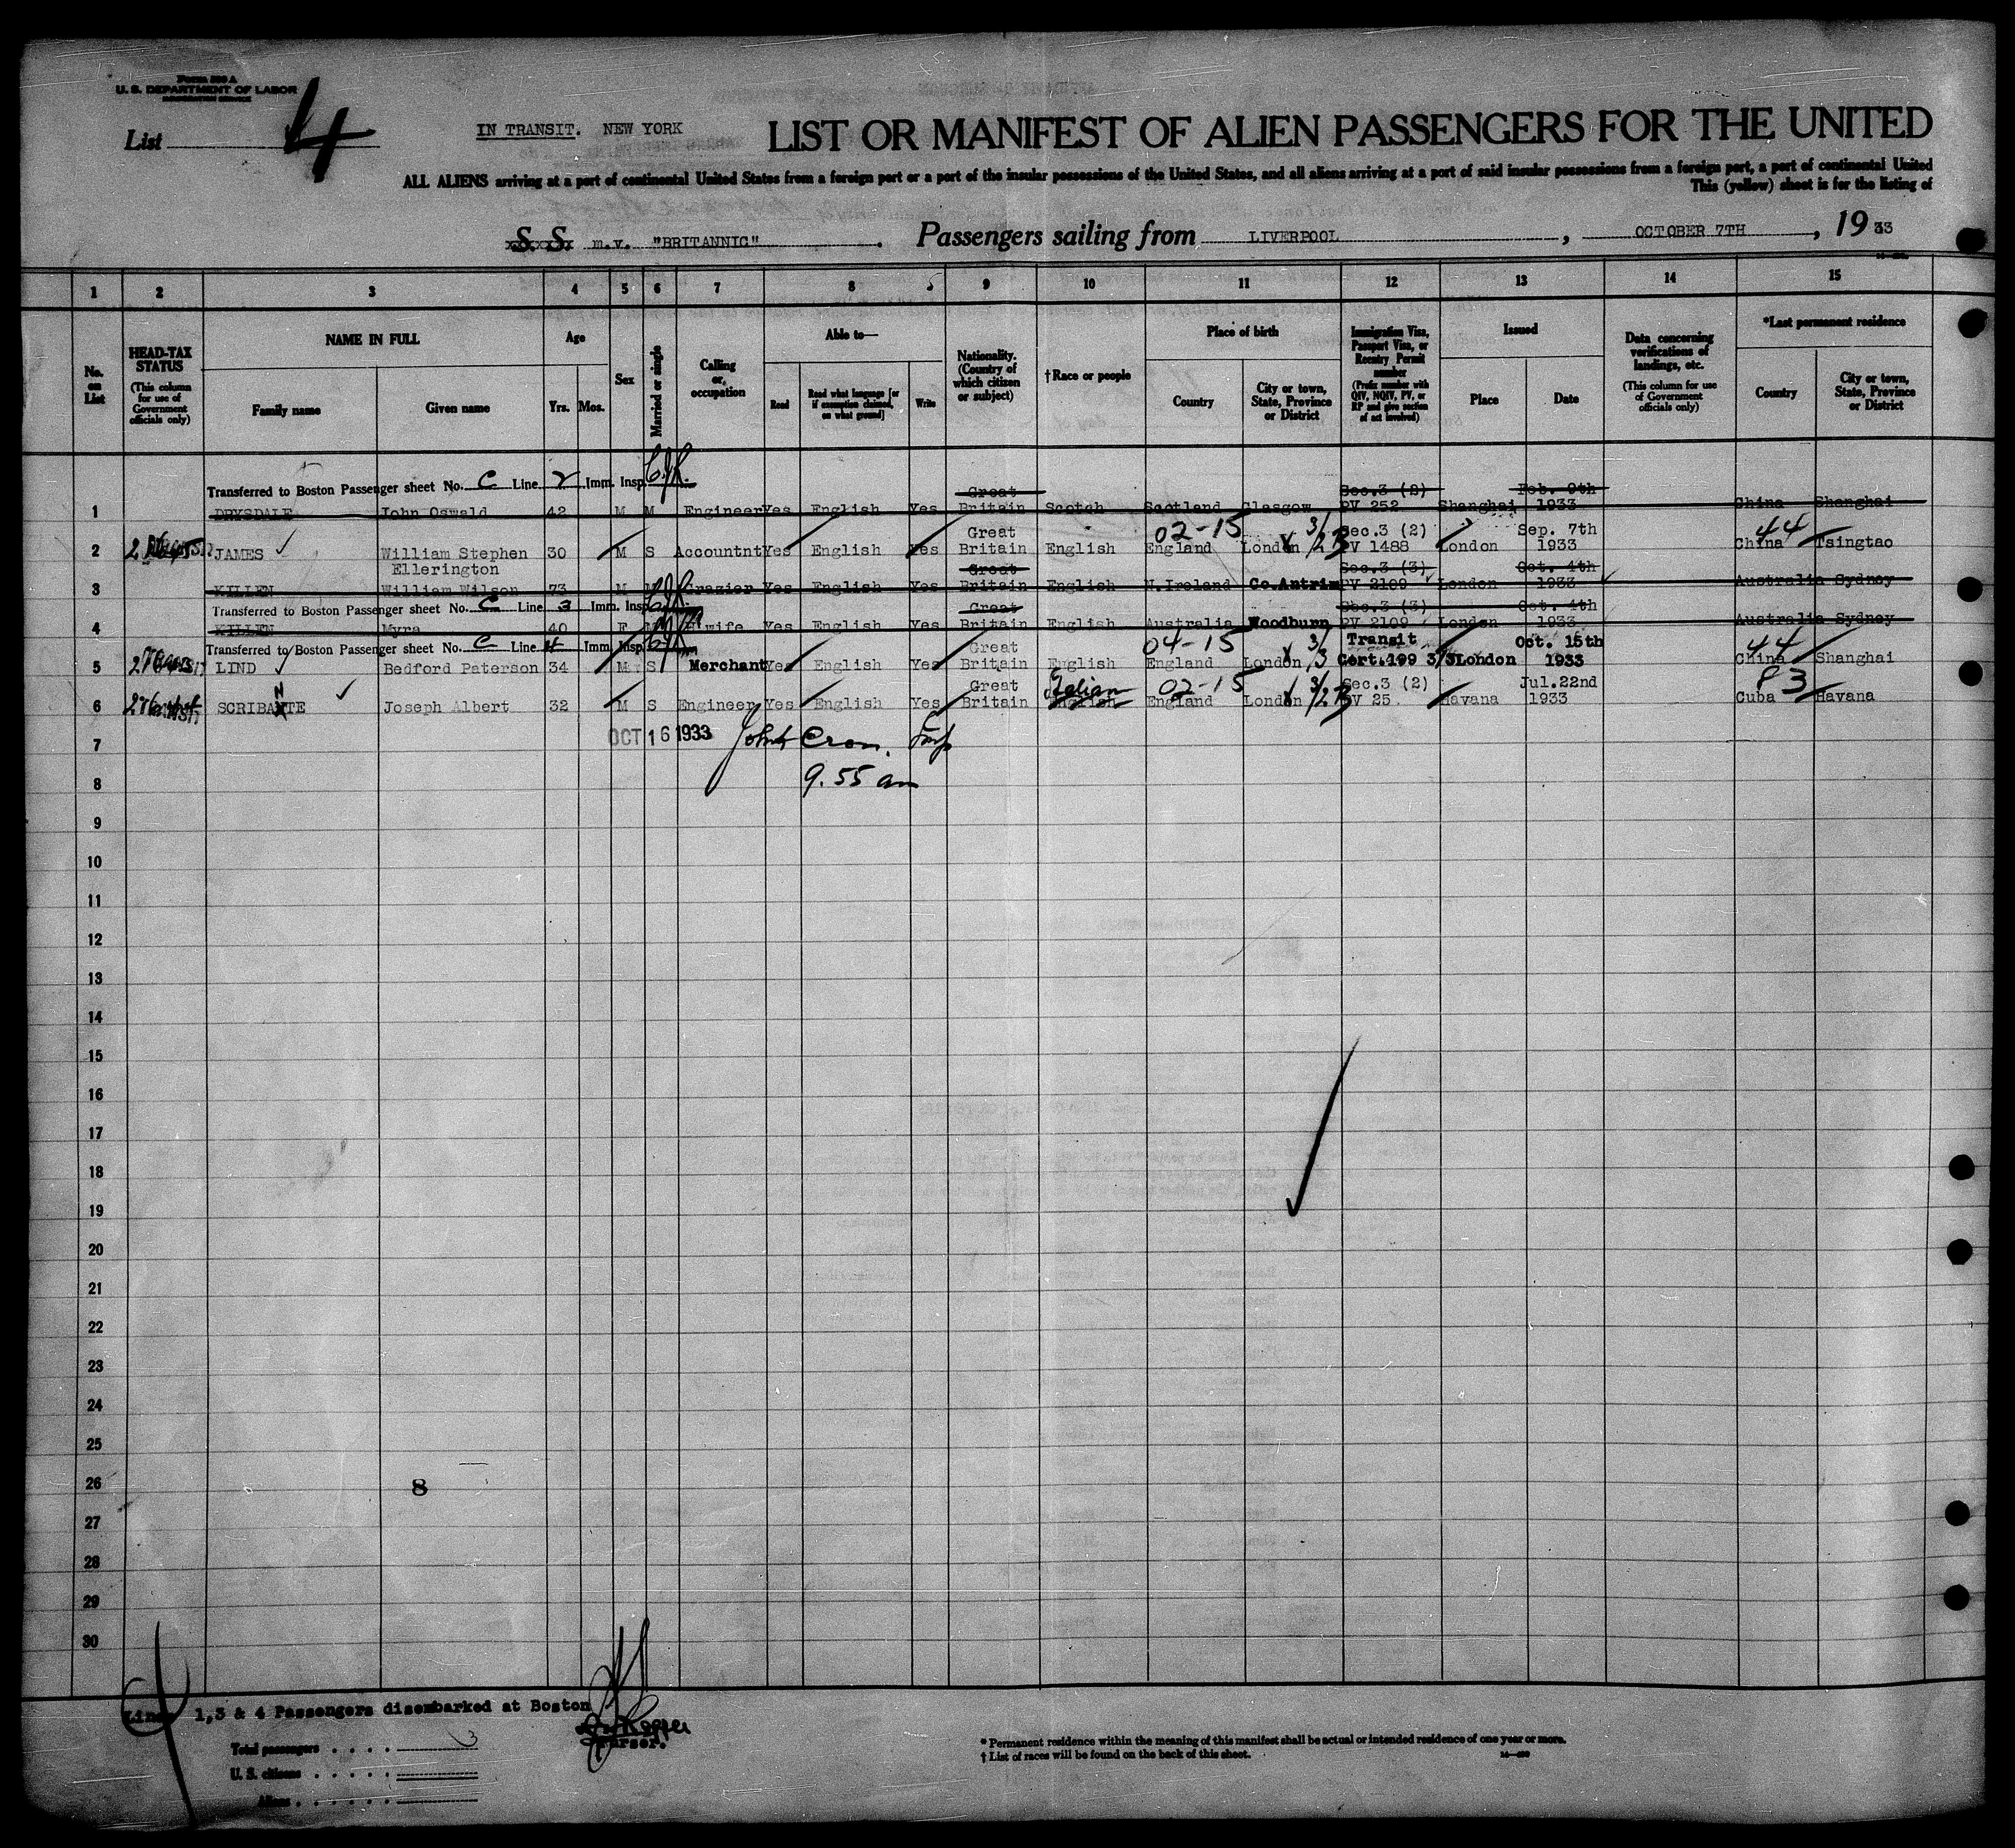 Form 500 A
U. S. DEPARTMENT OF LABOR
IMMIGRATION SERVICE
List 4
IN TRANSIT. NEW YORK
LIST OR MANIFEST OF ALIEN PASSENGERS FOR THE UNITED
ALL ALIENS arriving at a port of continental United States from a foreign port or a port of the insular possessions of the United States, and all aliens arriving at a port of said insular possessions from a foreign port, a part of continental United
This (yellow) sheet is for the listing of
S. S. m.v. "BRITANNIC" . Passengers sailing from LIVERPOOL , OCTOBER 7TH , 19 33
1 2 3 4 5 6 7 8 9 10 11 12 13 14 15
No. on List
HEAD-TAX STATUS (This column for use of Government officials only)
NAME IN FULL
Family name Given name
Age
Yrs. Mos.
Sex
Married or single
Calling or occupation
Able to—
Read Read what language [or if exemption claimed, on what ground] Write
Nationality. (Country of which citizen or subject)
†Race or people
Place of birth
Country City or town, State, Province or District
Immigration Visa, Passport Visa, or Reentry Permit number (Prefix number with QIV, NQIV, PV, or RP and give section of act involved)
Issued
Place Date
Data concerning verifications of landings, etc. (This column for use of Government officials only)
*Last permanent residence
Country City or town, State, Province or District
Transferred to Boston Passenger sheet No. C Line 2 Imm. Insp.
1 DRYSDALE John Oswald 42 M M Engineer Yes English Yes Great Britain Scotch Scotland Glasgow Sec.3 (2) PV 252 Shanghai Feb. 9th 1933 China Shanghai
2 JAMES William Stephen Ellerington 30 M S Accountnt Yes English Yes Great Britain English 02-15 England London Sec.3 (2) PV 1488 London Sep. 7th 1933 44 China Tsingtao
3 KILLEN William Wilson 73 M M Grazier Yes English Yes Great Britain English N.Ireland Co.Antrim Sec.3 (3) PV 2109 London Oct. 4th 1933 Australia Sydney
Transferred to Boston Passenger sheet No. C Line 3 Imm. Insp.
4 KILLEN Myra 40 F M H.wife Yes English Yes Great Britain English Australia Woodburn Sec.3 (3) PV 2109 London Oct. 4th 1933 Australia Sydney
Transferred to Boston Passenger sheet No. C Line 4 Imm. Insp.
5 LIND Bedford Paterson 34 M S Merchant Yes English Yes Great Britain English 04-15 England London Transit Cert.199 3/3 London Oct. 15th 1933 44 China Shanghai
6 SCRIBANTE N Joseph Albert 32 M S Engineer Yes English Yes Great Britain English Italian 02-15 England London Sec.3 (2) PV 25 Havana Jul.22nd 1933 83 Cuba Havana
7 OCT 16 1933
8 9.55 am
9
10
11
12
13
14
15
16
17
18
19
20
21
22
23
24
25
26 8
27
28
29
30
Line 1,3 & 4 Passengers disembarked at Boston
Purser.
Total passengers 3
U. S. citizens
Aliens
* Permanent residence within the meaning of this manifest shall be actual or intended residence of one year or more.
† List of races will be found on the back of this sheet.